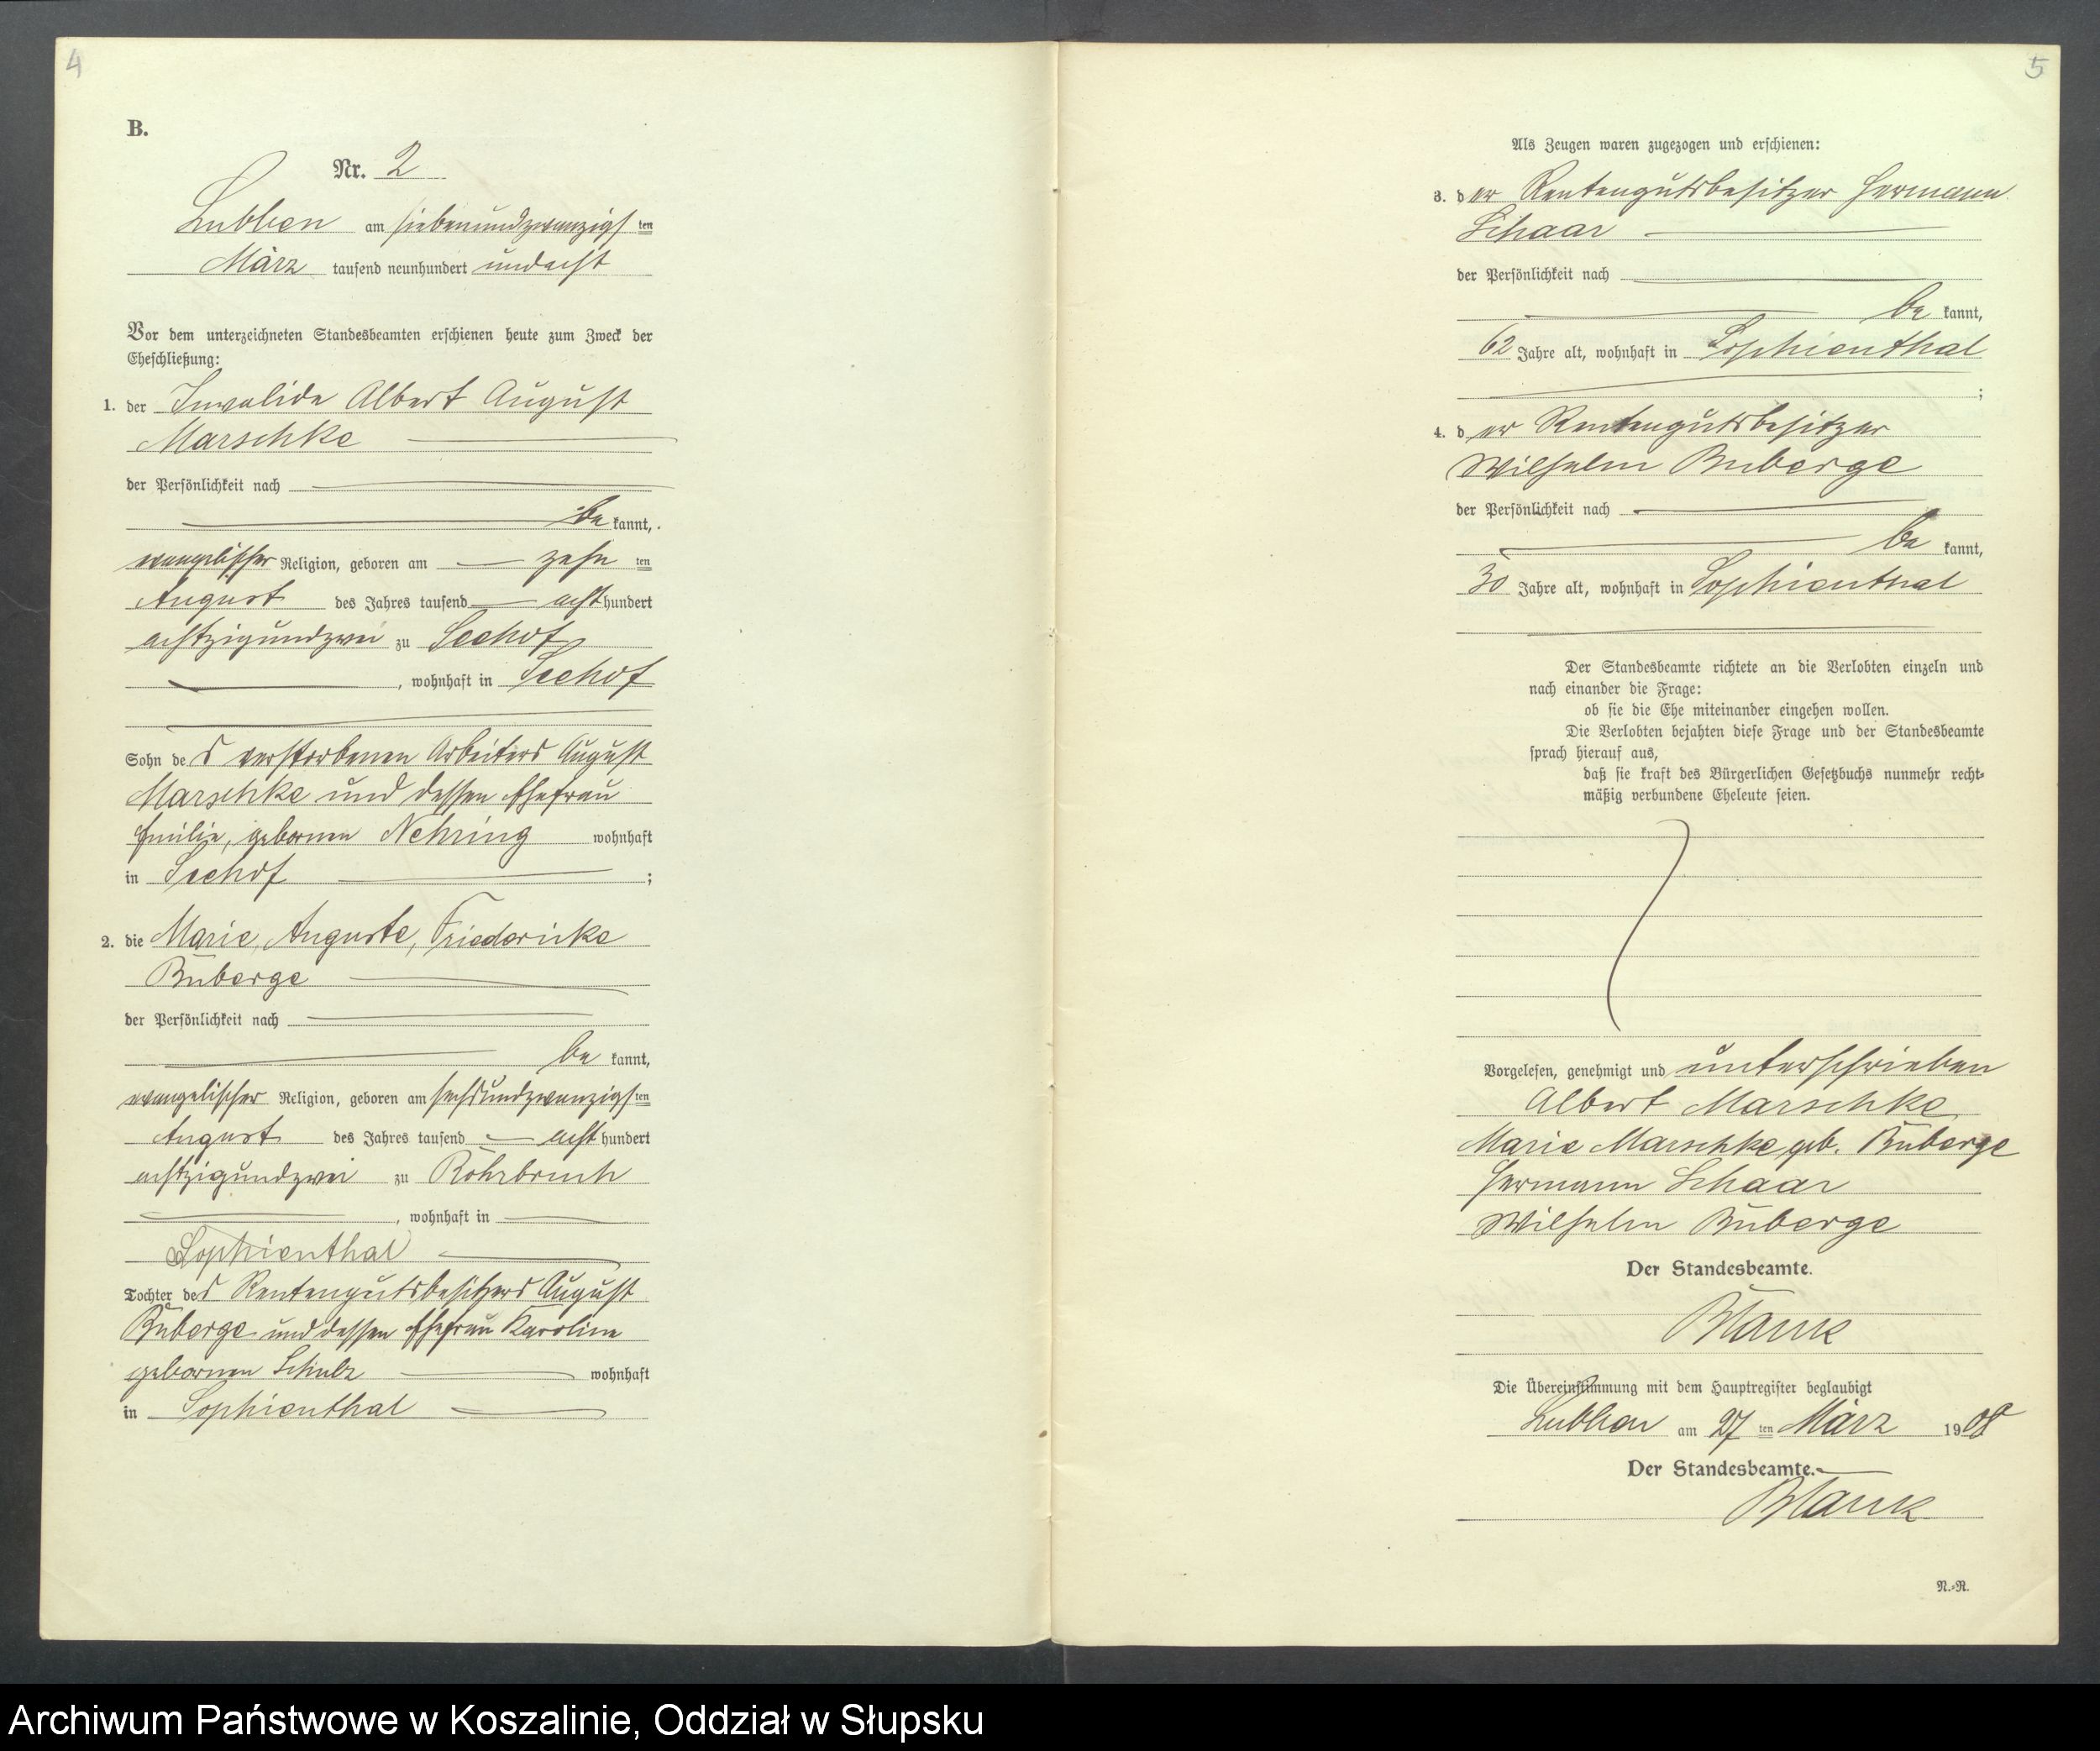 4
B.
Nr. 2
Lubben am siebenundzwanzigsten
März tausend neunhundert undacht
Vor dem unterzeichneten Standesbeamten erschienen heute zum Zweck der
Eheschließung:
1. der Invalide Albert August
Marschke
der Persönlichkeit nach
be kannt,
evangelischer Religion, geboren am zehn ten
August des Jahres tausend acht hundert
achtzigundzwei zu Seehof
, wohnhaft in Seehof
Sohn des verstorbenen Arbeiters August
Marschke und dessen Ehefrau
Emilie, gebornen Nehring wohnhaft
in Seehof ;
2. die Marie, Auguste, Friedericke
Büberge
der Persönlichkeit nach
be kannt,
evangelischer Religion, geboren am sechsundzwanzigsten
August des Jahres tausend acht hundert
achtzigundzwei zu Röhrbruch
, wohnhaft in
Sophienthal
Tochter des Rentengutsbesitzers August
Büberge und dessen Ehefrau Karoline
gebornen Schulz wohnhaft
in Sophienthal
5
Als Zeugen waren zugezogen und erschienen:
3. der Rentengutsbesitzer Hermann
Schaar
der Persönlichkeit nach
be kannt,
62 Jahre alt, wohnhaft in Sophienthal
;
4. der Rentengutsbesitzer
Wilhelm Büberge
der Persönlichkeit nach
be kannt,
30 Jahre alt, wohnhaft in Sophienthal
Der Standesbeamte richtete an die Verlobten einzeln und
nach einander die Frage:
ob sie die Ehe miteinander eingehen wollen.
Die Verlobten bejahten diese Frage und der Standesbeamte
sprach hierauf aus,
daß sie kraft des Bürgerlichen Gesetzbuchs nunmehr recht-
mäßig verbundene Eheleute seien.
Vorgelesen, genehmigt und unterschrieben
Albert Marschke
Marie Marschke geb. Büberge
Hermann Schaar
Wilhelm Büberge
Der Standesbeamte.
Blanck
Die Übereinstimmung mit dem Hauptregister beglaubigt
Lubben am 27 ten März 1908
Der Standesbeamte.
Blanck
N.-R.
Archiwum Państwowe w Koszalinie, Oddział w Słupsku